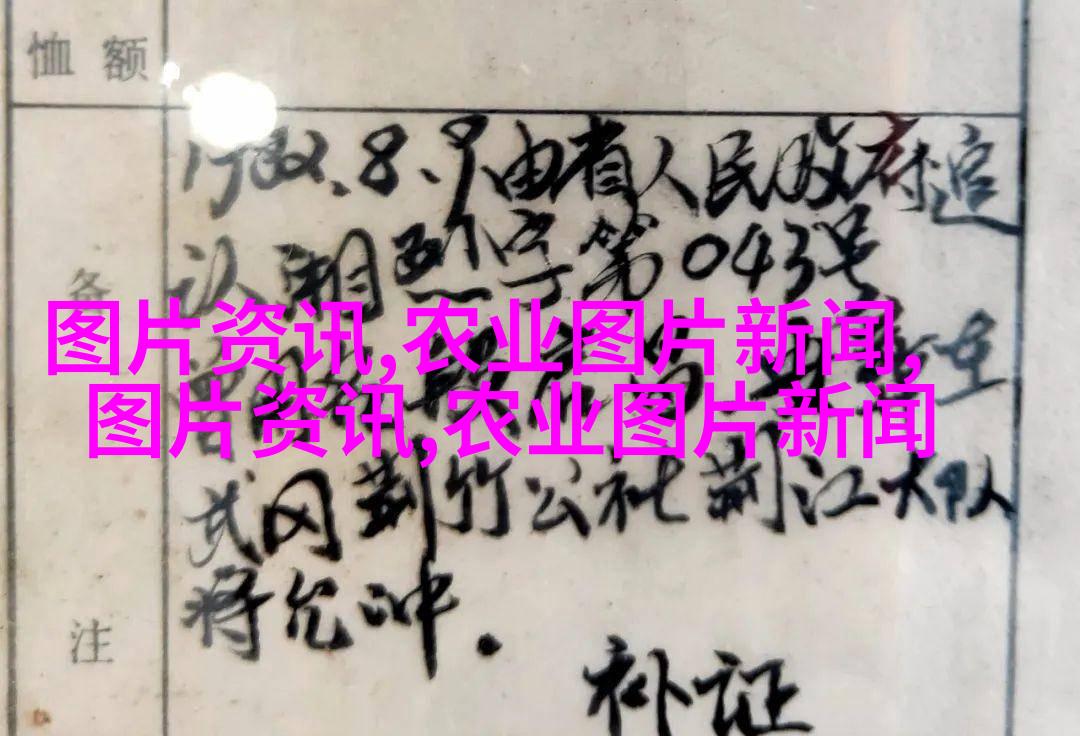 恤 额
1982.8.9由省人民政府追
认湘烈字第043号
备
图片资讯,农业图片新闻,
图片资讯,农业图片新闻
武冈荆竹公社荆江大队
蒋允冲.
注
补证